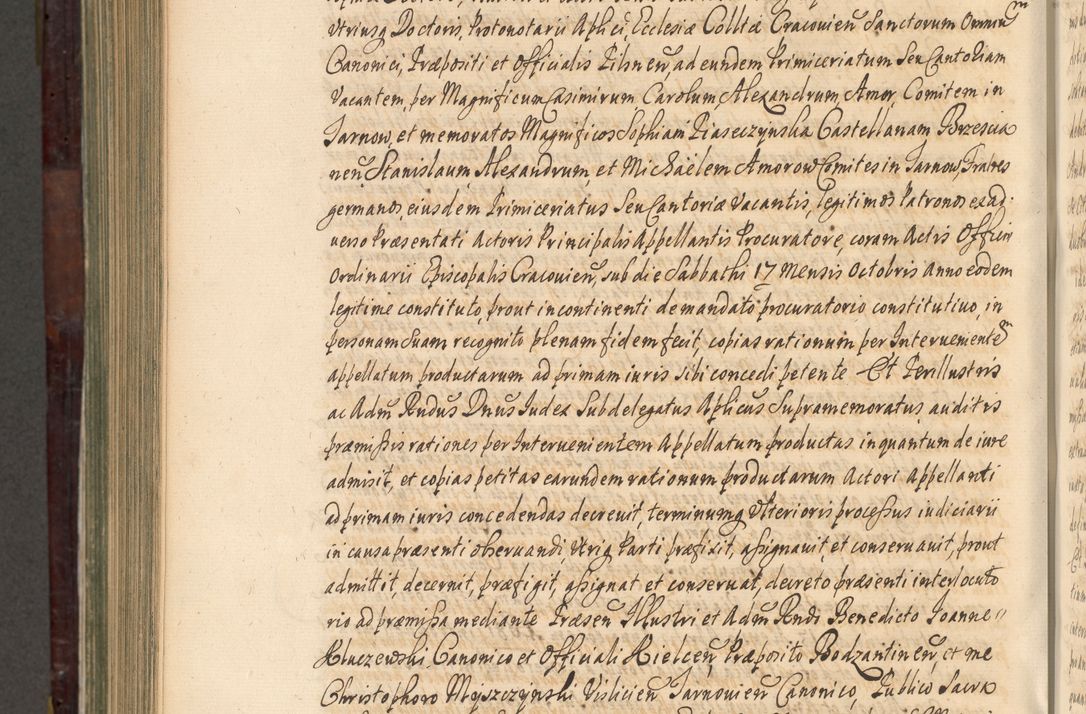 Utriusq Doctoris, Protonotarii Aplici, Ecclesiæ Colltæ Cracovien Sanctorum Omniu͞m
Canonici, Præpositi et Officialis Pilsnen, ad eundem Primiceriatum Seu Cantoriam
Vacantem, per Magnificum Casimirum Carolum, Alexandrum, Amor, Comitem in
Tarnow, et memoratos Magnificos Sophiam Piaseczynska Castellanam Brzescia
nen Stanislaum, Alexandrum, et Michaelem Amorow Comites in Tarnow, Fratres
germanos, eiusdem Primiceriatus Seu Cantoriæ Vacantis, legitimos Patronos ex ad:
verso Præsentati Actoris Principalis Appellantis Procuratore, coram Actis Officii
Ordinarii Episcopalis Cracovien, sub die Sabbathi 17 Mensis Octobris Anno eodem
legitime constituto, prout in continenti de mandato procuratorio constitutivo, in
personam Suam recognito plenam fidem fecit, copias rationum per Intervenientem
appellatum productarum ad primam iuris sibi concedi petente Et Perillustris
ac Adm Rndus Dnus Iudex Subdelegatus Aplicus Supramemoratus auditis
præmissis rationes per Intervenientem Appellatum productas in quantum de iure
admisit, et copias petitas earundem rationum productarum Actori Appellanti
ad primam iuris concedendas decrevit, terminumq Ulterioris processus iudiciarii
in causa præsenti observandi, Utriq Parti præfixit, assignavit, et conservavit, prout
admittit, decernit, præfigit, assignat et conservat, decreto præsenti interlocuto
rio ad præmissa mediante Præsen Illustri et Adm Rndi Benedicto Ioanne
Kluczewski, Canonico et Officiali Kielcen, Præposito Bodzantinen, et me
Christophoro Myszczynski Vislicien Tarnovien Canonico, Publico Sacra